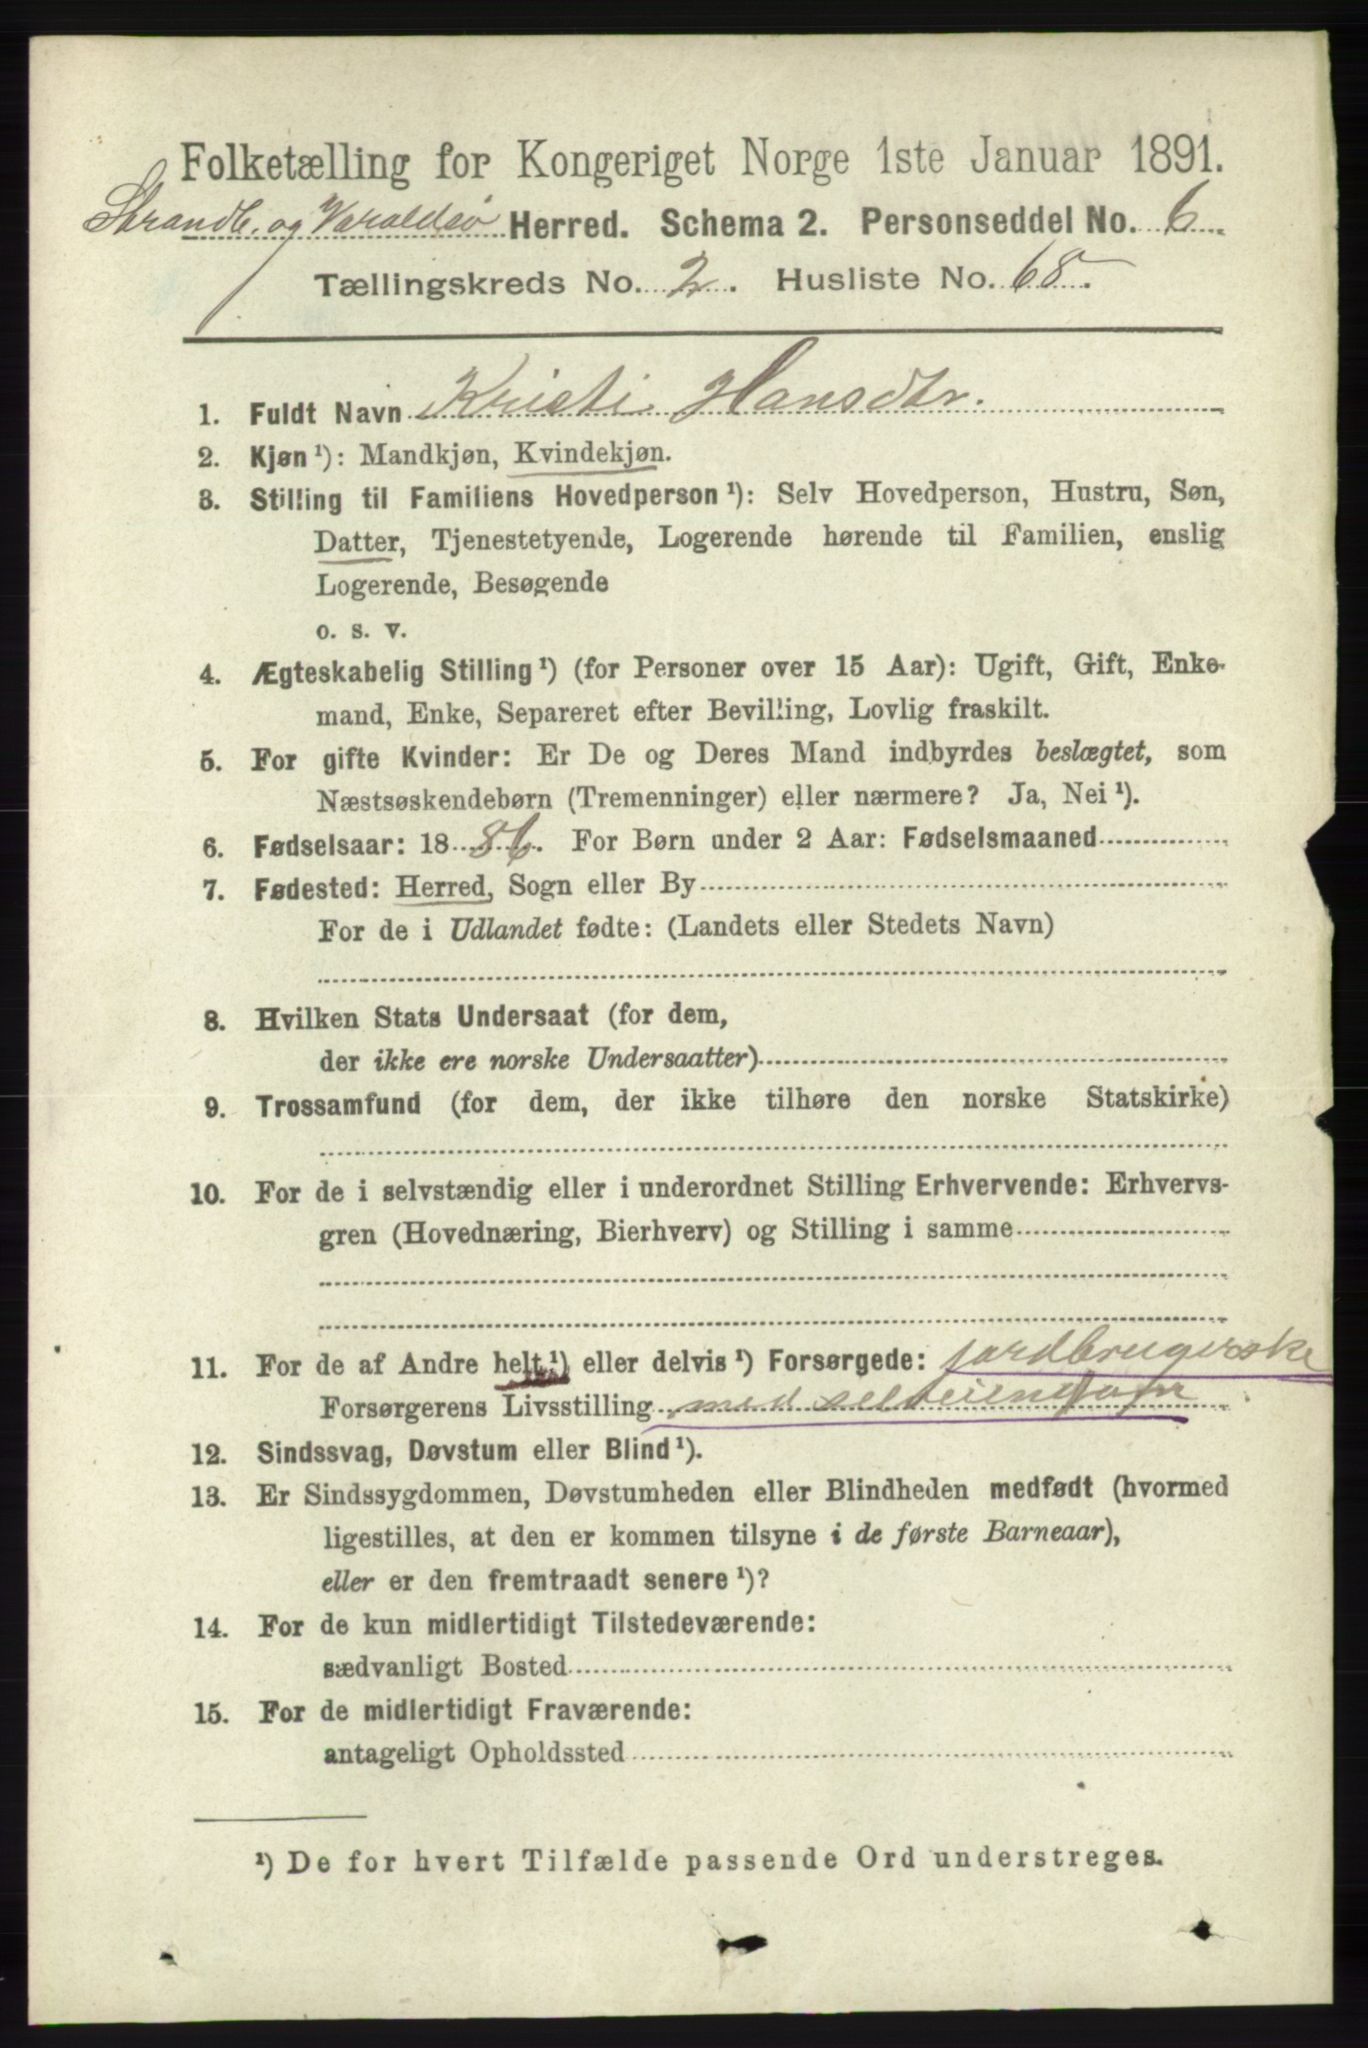 Folketælling for Kongeriget Norge 1ste Januar 1891.
Strandb. og Varaldsø Herred. Schema 2. Personseddel No. 6
Tællingskreds No. 2. Husliste No. 68.
1. Fuldt Navn Kristi Hansdtr.
2. Kjøn ¹): Mandkjøn, Kvindekjøn.
3. Stilling til Familiens Hovedperson ¹): Selv Hovedperson, Hustru, Søn,
Datter, Tjenestetyende, Logerende hørende til Familien, enslig
Logerende, Besøgende
o. s. v.
4. Ægteskabelig Stilling ¹) (for Personer over 15 Aar): Ugift, Gift, Enke-
mand, Enke, Separeret efter Bevilling, Lovlig fraskilt.
5. For gifte Kvinder: Er De og Deres Mand indbyrdes beslægtet, som
Næstsøskendebørn (Tremenninger) eller nærmere? Ja, Nei ¹).
6. Fødselsaar: 1886. For Børn under 2 Aar: Fødselsmaaned
7. Fødested: Herred, Sogn eller By
For de i Udlandet fødte: (Landets eller Stedets Navn)
8. Hvilken Stats Undersaat (for dem,
der ikke ere norske Undersaatter)
9. Trossamfund (for dem, der ikke tilhøre den norske Statskirke)
10. For de i selvstændig eller i underordnet Stilling Erhvervende: Erhvervs-
gren (Hovednæring, Bierhverv) og Stilling i samme
11. For de af Andre helt ¹) eller delvis ¹) Forsørgede: jordbrugerske
Forsørgerens Livsstilling med selveiendom
12. Sindssvag, Døvstum eller Blind ¹).
13. Er Sindssygdommen, Døvstumheden eller Blindheden medfødt (hvormed
ligestilles, at den er kommen tilsyne i de første Barneaar),
eller er den fremtraadt senere ¹)?
14. For de kun midlertidigt Tilstedeværende:
sædvanligt Bosted
15. For de midlertidigt Fraværende:
antageligt Opholdssted
¹) De for hvert Tilfælde passende Ord understreges.